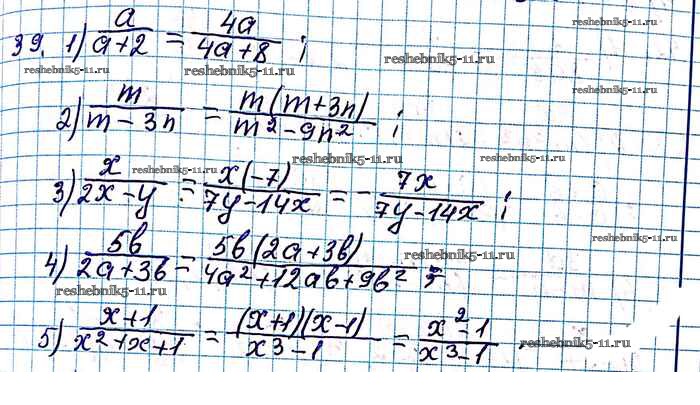 39. 1) a/(a+2) = 4a/(4a+8);
reshebnik5-11.ru reshebnik5-11.ru reshebnik5-11.ru reshebnik5-11.ru
2) m/(m-3n) = m(m+3n)/(m²-9n²);
reshebnik5-11.ru reshebnik5-11.ru reshebnik5-11.ru
3) x/(2x-y) = x(-7)/(7y-14x) = -7x/(7y-14x);
reshebnik5-11.ru reshebnik5-11.ru reshebnik5-11.ru
4) 5b/(2a+3b) = 5b(2a+3b)/(4a²+12ab+9b²);
reshebnik5-11.ru reshebnik5-11.ru reshebnik5-11.ru
5) (x+1)/(x²+x+1) = (x+1)(x-1)/(x³-1) = (x²-1)/(x³-1)
reshebnik5-11.ru reshebnik5-11.ru